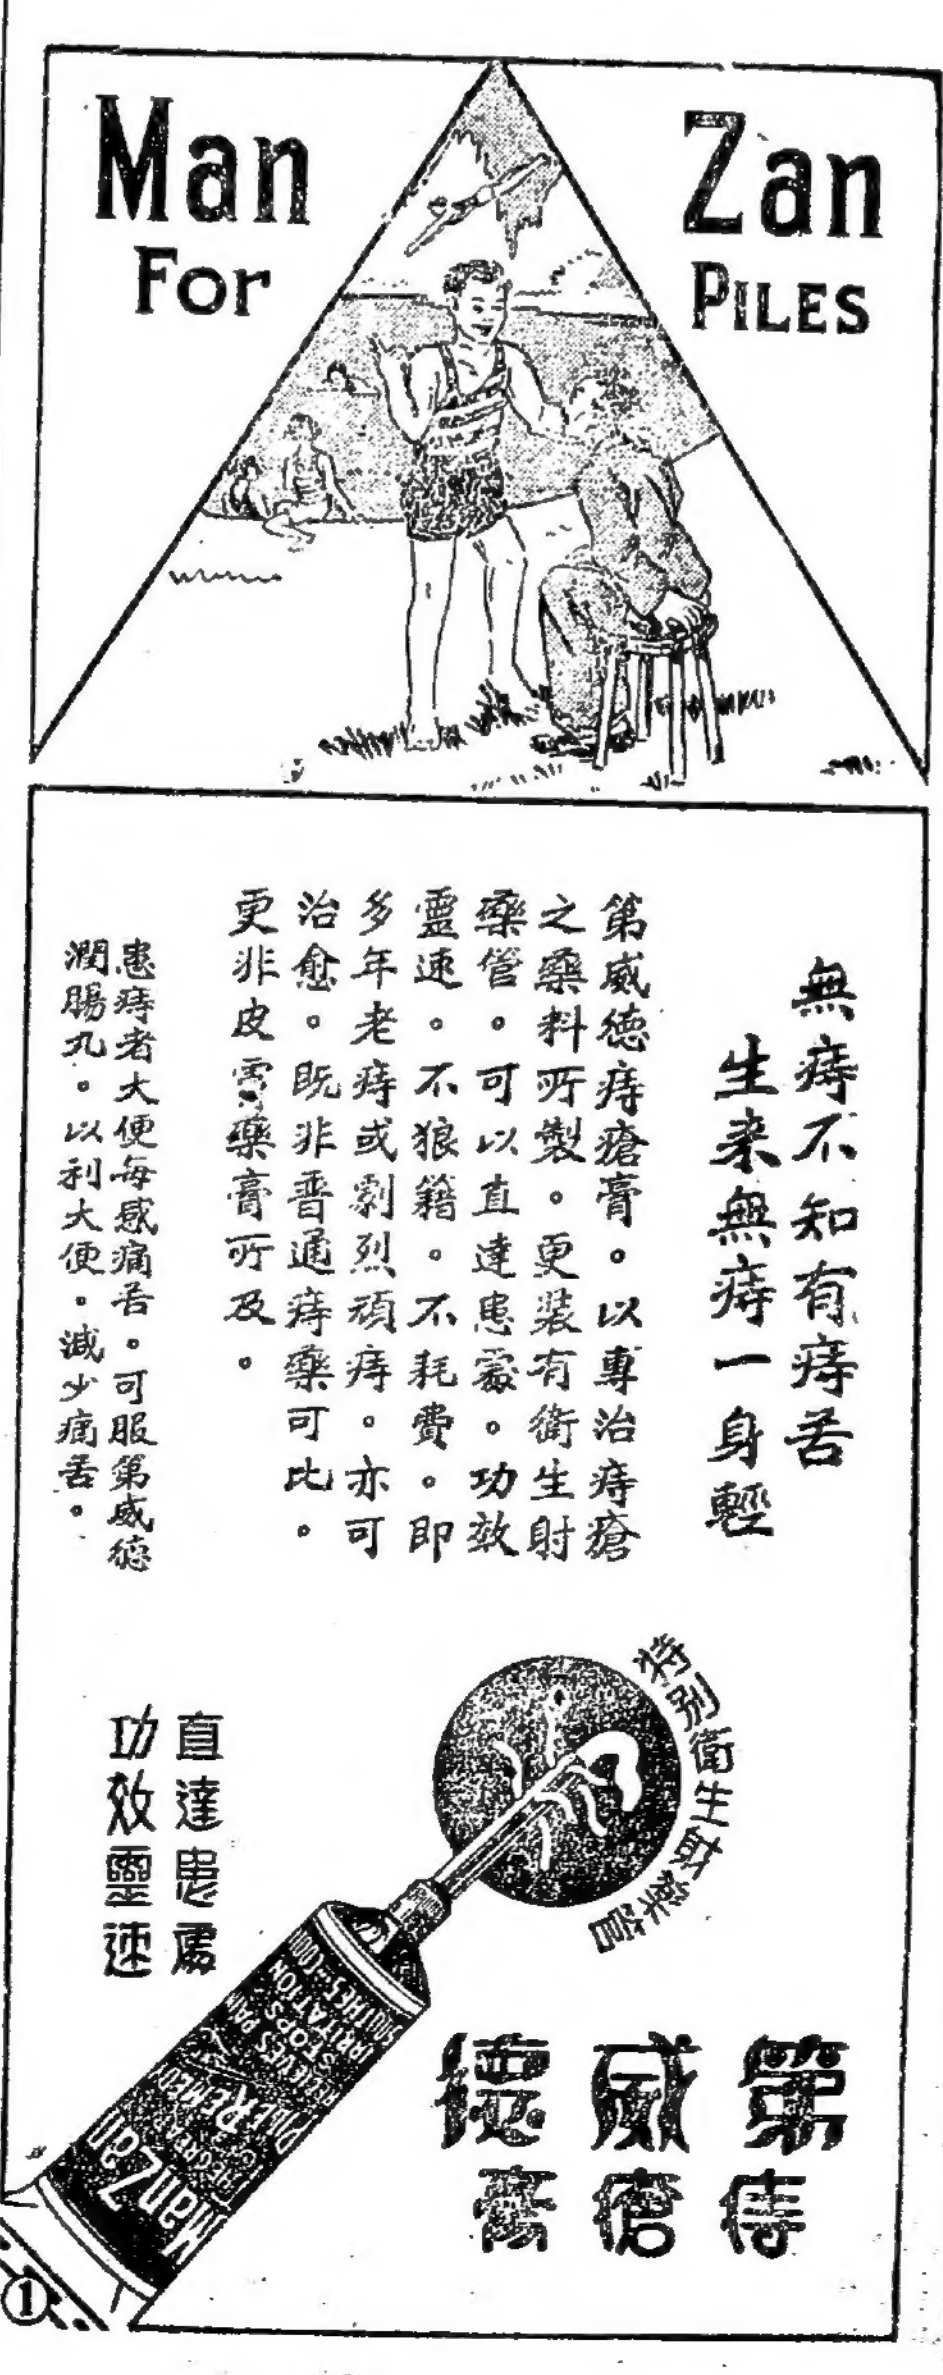 Man Zan
For Piles
無痔不知有痔苦
生来無痔一身輕
第威德痔瘡膏。以專治痔瘡
之藥料所製。更裝有衛生射
藥管。可以直達患處。功效
靈速。不狼籍。不耗費。即
多年老痔或劇烈頑痔。亦可
治愈。既非普通痔藥可比。
更非皮膏藥膏所及。
患痔者大便每感痛苦。可服第威德
潤腸丸。以利大便。減少痛苦。
特別衛生射藥管
直達患處
功效靈速
ManZan
PILE REMEDY
RELIEVES PAIN
STOPS
IRRITATION
SOOTHES
第威德
痔瘡膏
1